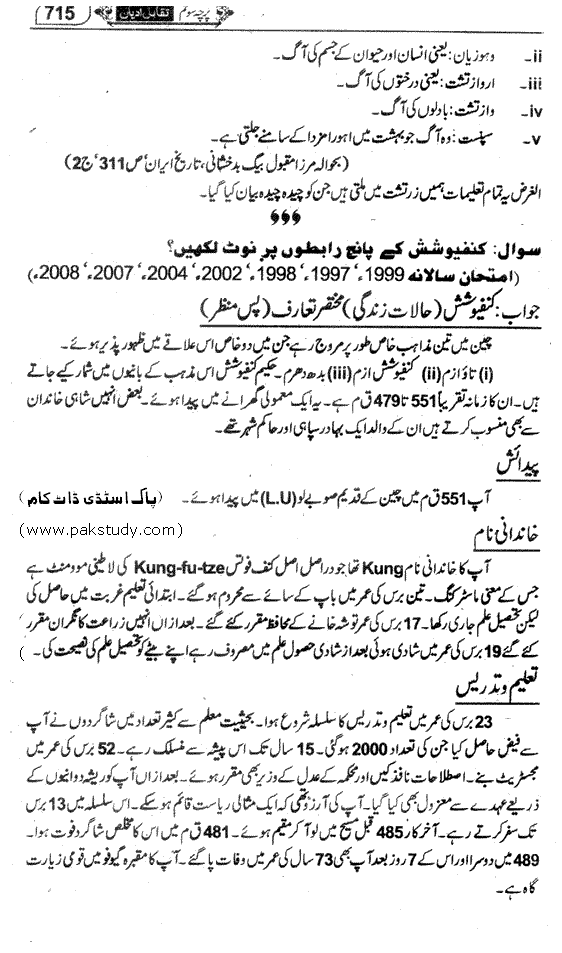 715 تقابل ادیان پرچہ سوم
ii۔ وہوزیان: یعنی انسان اور حیوان کے جسم کی آگ۔
iii۔ اروازتشت: یعنی درختوں کی آگ۔
iv۔ وازتشت: بادلوں کی آگ۔
v۔ سپنست: وہ آگ جو بہشت میں اہورامزدا کے سامنے جلتی ہے۔
(بحوالہ مرزا مقبول بیگ بدخشانی، تاریخ ایران‘ ص 311‘ ج 2)
الغرض یہ تمام تعلیمات ہمیں زرتشت میں ملتی ہیں جن کو چیدہ چیدہ بیان کیا گیا۔
سوال: کنفیوشش کے پانچ رابطوں پر نوٹ لکھیں؟
(امتحان سالانہ 1999ء‘ 1997ء‘ 1998ء‘ 2002ء‘ 2004ء‘ 2007ء‘ 2008ء)
جواب: کنفیوشش (حالات زندگی) مختصر تعارف (پس منظر)
چین میں تین مذاہب خاص طور پر مروج رہے جن میں دو خاص اس علاقے میں ظہور پذیر ہوئے۔
(i) تاؤ ازم (ii) کنفیوشش ازم (iii) بدھ دھرم۔ حکیم کنفیوشش اس مذہب کے بانیوں میں شمار کیے جاتے
ہیں۔ ان کا زمانہ تقریباً 551 تا 479 ق م ہے۔ یہ ایک معمولی گھرانے میں پیدا ہوئے۔ بعض انہیں شاہی خاندان
سے بھی منسوب کرتے ہیں ان کے والد ایک بہادر سپاہی اور حاکم شہر تھے۔
پیدائش
آپ 551 ق م میں چین کے قدیم صوبے لو (L.U) میں پیدا ہوئے۔ (پاک اسٹڈی ڈاٹ کام)
(www.pakstudy.com)
خاندانی نام
آپ کا خاندانی نام Kung تھا جو دراصل اصل کنف فوتس Kung-fu-tze کی لاطینی موومنٹ ہے
جس کے معنی ماسٹر کنگ۔ تین برس کی عمر میں باپ کے سائے سے محروم ہو گئے۔ ابتدائی تعلیم غربت میں حاصل کی
لیکن تحصیل علم جاری رکھا۔ 17 برس کی عمر توشہ خانے کے محافظ مقرر کئے گئے۔ بعد ازاں انہیں زراعت کا نگران مقرر
کئے گئے 19 برس کی عمر میں شادی ہوئی بعد از شادی حصول علم میں مصروف رہے اپنے بیٹے کو تحصیل علم کی نصیحت کی۔
تعلیم و تدریس
23 برس کی عمر میں تعلیم و تدریس کا سلسلہ شروع ہوا۔ بحیثیت معلم سے کثیر تعداد میں شاگردوں نے آپ
سے فیض حاصل کیا جن کی تعداد 2000 ہو گئی۔ 15 سال تک اس پیشہ سے منسلک رہے۔ 52 برس کی عمر میں
مجسٹریٹ بنے۔ اصطلاحات نافذ کیں اور محکمہ کے عدل کے وزیر بھی مقرر ہوئے۔ بعد ازاں آپ کو ریشہ دوانیوں کے
ذریعے عہدے سے معزول بھی کیا گیا۔ آپ کی آرزو تھی کہ ایک مثالی ریاست قائم ہو سکے۔ اس سلسلہ میں 13 برس
تک سفر کرتے رہے۔ آخر کار 485 قبل مسیح میں لو آ کر مقیم ہوئے۔ 481 ق م میں اس کا مخلص شاگرد فوت ہوا۔
489 میں دوسرا اور اس کے 7 روز بعد آپ بھی 73 سال کی عمر میں وفات پا گئے۔ آپ کا مقبرہ کیوفو میں قومی زیارت
گاہ ہے۔